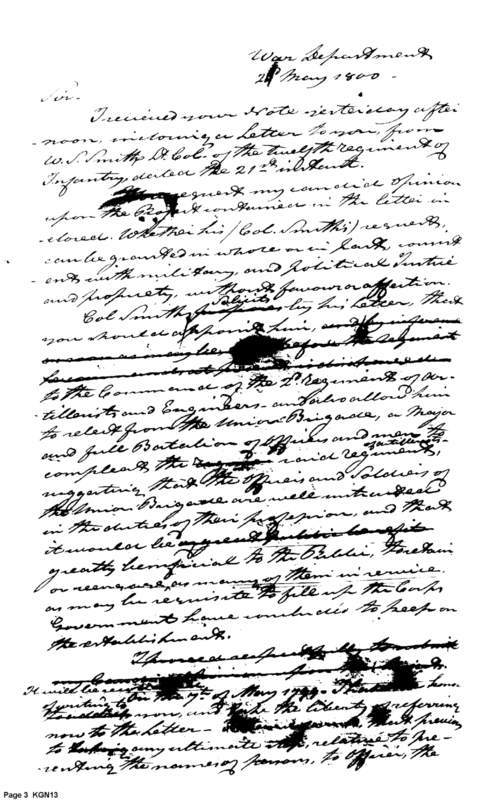 War Department
May 1800.
Sir.
I received your Note yesterday after
-noon, inclosing a Letter to you, from
W. S. Smith Lt. Col. of the twelfth regiment of
Infantry dated the 21st instant.
You request my candid opinion
upon the Project contained in the letter in
-closed. Whether his (Col. Smith's) request,
can be granted in whole or in part, consist
ently with military, and political Justice
and propriety, without favour or affection.
Col. Smith solicits by his Letter, that
you should appoint him,
before the regiment
to the Command of the 2d regiment of Ar-
tillerists and Engineers and also allow him
to select from the Union Brigade, a Major
and full Batalion of Officers and men to
compleat the said regiment,
suggesting that the Officers and Soldiers of
the Union Brigade are well instructed
in the duties of their profession, and that
it would be
greatly beneficial to the Public, to retain
or reengage, as many of them in service,
as may be requisite to fill up the Corps
Government have concluded to keep on
the establishment.
It will be
On the 7th of May 1799.
now, and take the liberty of referring
now to the Letter that previous
to taking any ultimate step, relative to pre-
senting the names of persons, to Officer, the
Page 3 KGN13